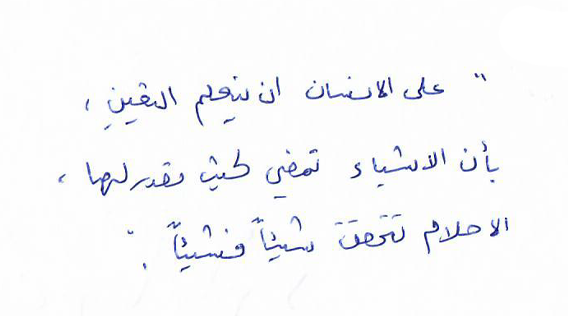 " على الانسان ان يتعلم اليقين ،
بأن الاشياء تمضي كيف مقدر لها ،
الاحلام تتحقق شيئاً فشيئاً . "